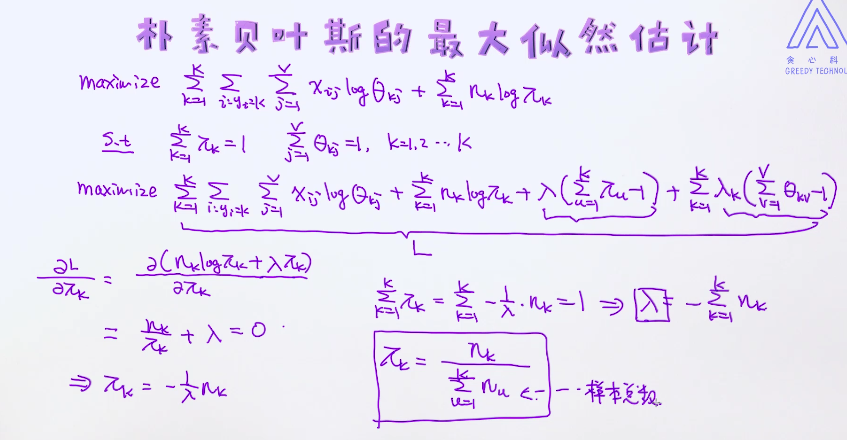 朴素贝叶斯的最大似然估计
贪心科
GREEDY TECHNOL
maximize ∑_{k=1}^{K} ∑_{i:y_i=k} ∑_{j=1}^{V} x_{ij} log θ_{kj} + ∑_{k=1}^{K} n_k log π_k
s.t ∑_{k=1}^{K} π_k = 1 ∑_{j=1}^{V} θ_{kj} = 1, k=1,2 ⋯ K
maximize ∑_{k=1}^{K} ∑_{i:y_i=k} ∑_{j=1}^{V} x_{ij} log θ_{kj} + ∑_{k=1}^{K} n_k log π_k + λ(∑_{u=1}^{K} π_u - 1) + ∑_{k=1}^{K} λ_k(∑_{v=1}^{V} θ_{kv} - 1)
L
∂L/∂π_k = ∂(n_k log π_k + λπ_k)/∂π_k
= n_k/π_k + λ = 0
⇒ π_k = -1/λ n_k
∑_{k=1}^{K} π_k = ∑_{k=1}^{K} -1/λ · n_k = 1 ⇒ λ = -∑_{k=1}^{K} n_k
π_k = n_k / ∑_{u=1}^{K} n_u ← ⋯ 样本总数